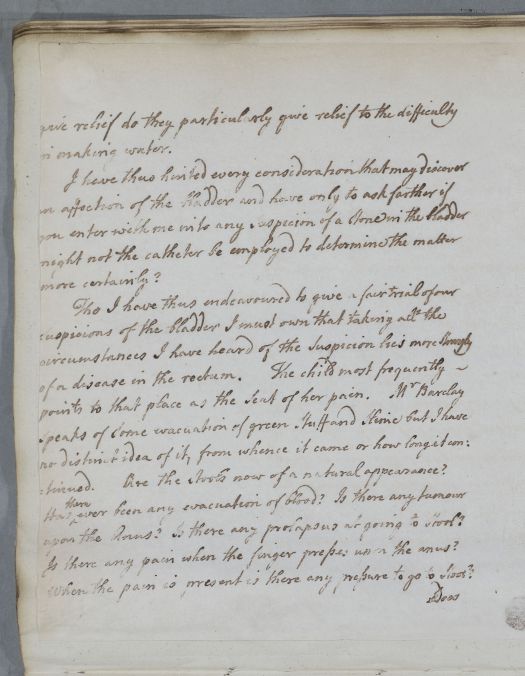 give relief do they particularly give relief to the difficulty
in making water.
I have thus hinted every consideration that may discover
an affection of the bladder and have only to ask farther if
you enter with me into any suspicion of a stone in the bladder
might not the catheter be employed to determine the matter
more certainly?
Tho I have thus endeavoured to give a fair trial of our
suspicions of the bladder I must own that taking all the
circumstances I have heard of the suspicion lies more strongly
of a disease in the rectum. The child most frequently ~
points to that place as the Seat of her pain. Mr Barclay
speaks of some evacuation of green Stuff and Slime but I have
no distinct idea of it, from whence it came or how long it con:
:tinued. Are the stools now of a natural appearance?
Has there ever been any evacuation of blood? Is there any tumour
upon the Anus? Is there any prolapsus at going to stool?
Is there any pain when the finger presses upon the anus?
When the pain is present is there any pressure to go to stool?
Does